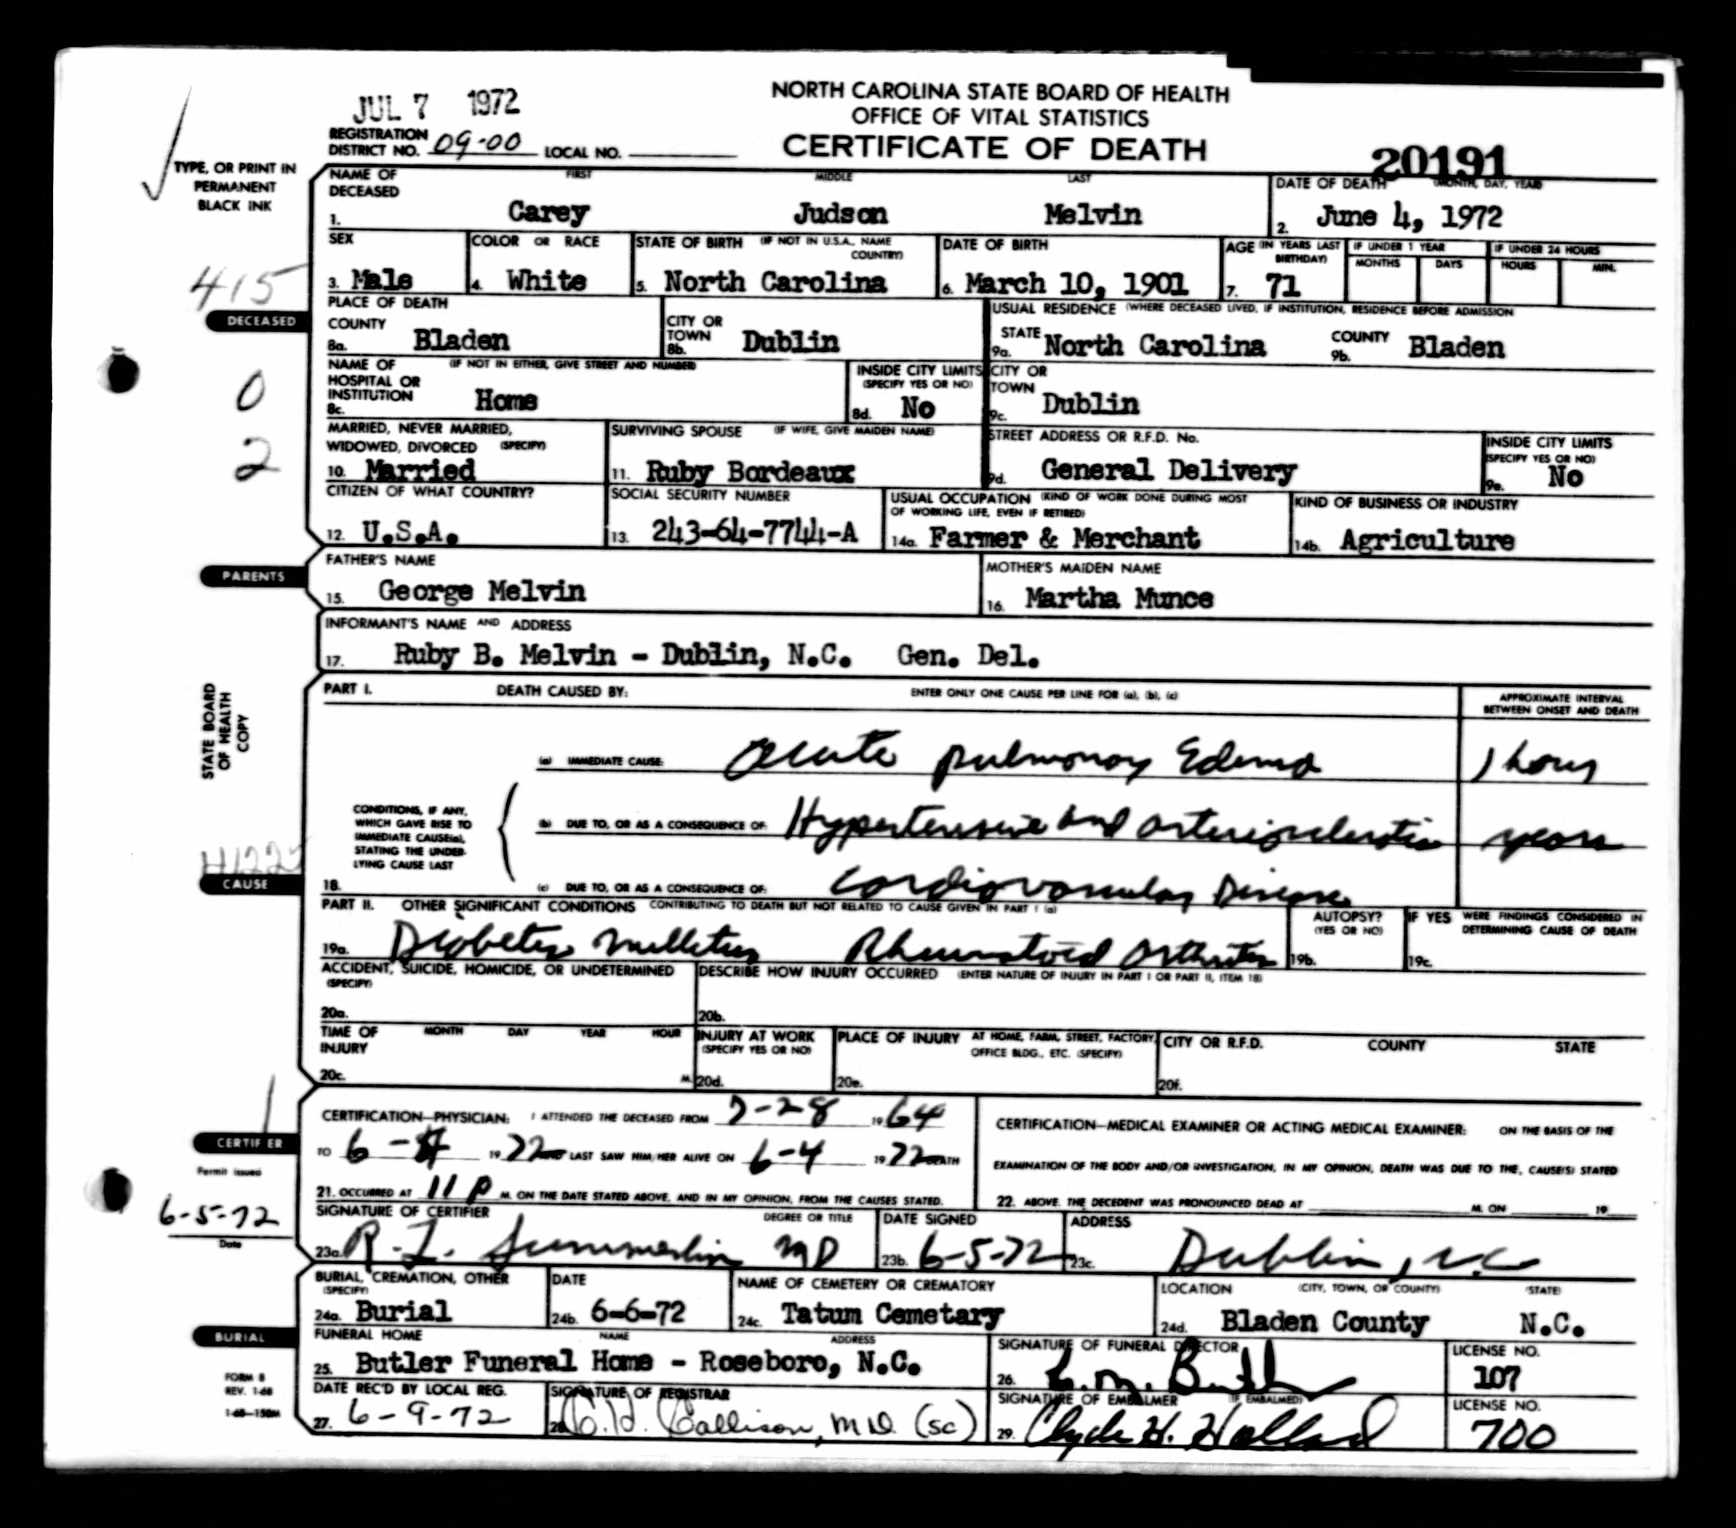 JUL 7 1972
NORTH CAROLINA STATE BOARD OF HEALTH
OFFICE OF VITAL STATISTICS
CERTIFICATE OF DEATH
REGISTRATION DISTRICT NO. 09-00 LOCAL NO.
20191
TYPE, OR PRINT IN
PERMANENT
BLACK INK
NAME OF DECEASED FIRST MIDDLE LAST
1. Carey Judson Melvin
DATE OF DEATH (MONTH, DAY, YEAR)
2. June 4, 1972
SEX
3. Male
COLOR OR RACE
4. White
STATE OF BIRTH (IF NOT IN U.S.A., NAME COUNTRY)
5. North Carolina
DATE OF BIRTH
6. March 10, 1901
AGE (IN YEARS LAST BIRTHDAY)
7. 71
IF UNDER 1 YEAR
MONTHS DAYS
IF UNDER 24 HOURS
HOURS MIN.
415
DECEASED
0
2
PLACE OF DEATH
COUNTY
8a. Bladen
CITY OR TOWN
8b. Dublin
USUAL RESIDENCE (WHERE DECEASED LIVED, IF INSTITUTION, RESIDENCE BEFORE ADMISSION
STATE
9a. North Carolina
COUNTY
9b. Bladen
NAME OF HOSPITAL OR INSTITUTION (IF NOT IN EITHER, GIVE STREET AND NUMBER)
8c. Home
INSIDE CITY LIMITS (SPECIFY YES OR NO)
8d. No
CITY OR TOWN
9c. Dublin
MARRIED, NEVER MARRIED, WIDOWED, DIVORCED (SPECIFY)
10. Married
SURVIVING SPOUSE (IF WIFE, GIVE MAIDEN NAME)
11. Ruby Bordeaux
STREET ADDRESS OR R.F.D. No.
9d. General Delivery
INSIDE CITY LIMITS (SPECIFY YES OR NO)
9e. No
CITIZEN OF WHAT COUNTRY?
12. U.S.A.
SOCIAL SECURITY NUMBER
13. 243-64-7744-A
USUAL OCCUPATION (KIND OF WORK DONE DURING MOST OF WORKING LIFE, EVEN IF RETIRED)
14a. Farmer & Merchant
KIND OF BUSINESS OR INDUSTRY
14b. Agriculture
PARENTS
FATHER'S NAME
15. George Melvin
MOTHER'S MAIDEN NAME
16. Martha Munce
INFORMANT'S NAME AND ADDRESS
17. Ruby B. Melvin - Dublin, N.C. Gen. Del.
STATE BOARD
OF HEALTH
COPY
PART I. DEATH CAUSED BY: ENTER ONLY ONE CAUSE PER LINE FOR (a), (b), (c)
APPROXIMATE INTERVAL BETWEEN ONSET AND DEATH
(a) IMMEDIATE CAUSE: Acute pulmonary Edema 1 hour
CONDITIONS, IF ANY, WHICH GAVE RISE TO IMMEDIATE CAUSE(a), STATING THE UNDERLYING CAUSE LAST
(b) DUE TO, OR AS A CONSEQUENCE OF: Hypertensive and arteriosclerotic years
18. (c) DUE TO, OR AS A CONSEQUENCE OF: Cardiovascular Disease
CAUSE
PART II. OTHER SIGNIFICANT CONDITIONS CONTRIBUTING TO DEATH BUT NOT RELATED TO CAUSE GIVEN IN PART I (a)
19a. Diabetes Mellitus Rheumatoid Arthritis
AUTOPSY? (YES OR NO)
19b.
IF YES WERE FINDINGS CONSIDERED IN DETERMINING CAUSE OF DEATH
19c.
ACCIDENT, SUICIDE, HOMICIDE, OR UNDETERMINED (SPECIFY)
20a.
DESCRIBE HOW INJURY OCCURRED (ENTER NATURE OF INJURY IN PART I OR PART II, ITEM 18)
20b.
TIME OF INJURY MONTH DAY YEAR HOUR
20c. M.
INJURY AT WORK (SPECIFY YES OR NO)
20d.
PLACE OF INJURY AT HOME, FARM, STREET, FACTORY, OFFICE BLDG., ETC. (SPECIFY)
20e.
CITY OR R.F.D. COUNTY STATE
20f.
CERTIFIER
Permit issued
6-5-72
Date
CERTIFICATION—PHYSICIAN: I ATTENDED THE DECEASED FROM 7-28 1964
TO 6-4 1972 LAST SAW HIM/HER ALIVE ON 6-4 1972 DEATH
21. OCCURRED AT 11 P M. ON THE DATE STATED ABOVE, AND IN MY OPINION, FROM THE CAUSES STATED.
CERTIFICATION—MEDICAL EXAMINER OR ACTING MEDICAL EXAMINER: ON THE BASIS OF THE
EXAMINATION OF THE BODY AND/OR INVESTIGATION, IN MY OPINION, DEATH WAS DUE TO THE, CAUSE(S) STATED
22. ABOVE. THE DECEDENT WAS PRONOUNCED DEAD AT M. ON 19
SIGNATURE OF CERTIFIER DEGREE OR TITLE
23a. R. L. Summerlin MD
DATE SIGNED
23b. 6-5-72
ADDRESS
23c. Dublin, N.C.
BURIAL, CREMATION, OTHER (SPECIFY)
24a. Burial
DATE
24b. 6-6-72
NAME OF CEMETERY OR CREMATORY
24c. Tatum Cemetary
LOCATION (CITY, TOWN, OR COUNTY) (STATE)
24d. Bladen County N.C.
BURIAL
FUNERAL HOME NAME ADDRESS
25. Butler Funeral Home - Roseboro, N.C.
SIGNATURE OF FUNERAL DIRECTOR
26.
LICENSE NO.
107
FORM 8
REV. 1-68
1-68—150M
DATE REC'D BY LOCAL REG.
27. 6-9-72
SIGNATURE OF REGISTRAR
28. Callison, M.D. (SC)
SIGNATURE OF EMBALMER (IF EMBALMED)
29. Clyde H. Holland
LICENSE NO.
700